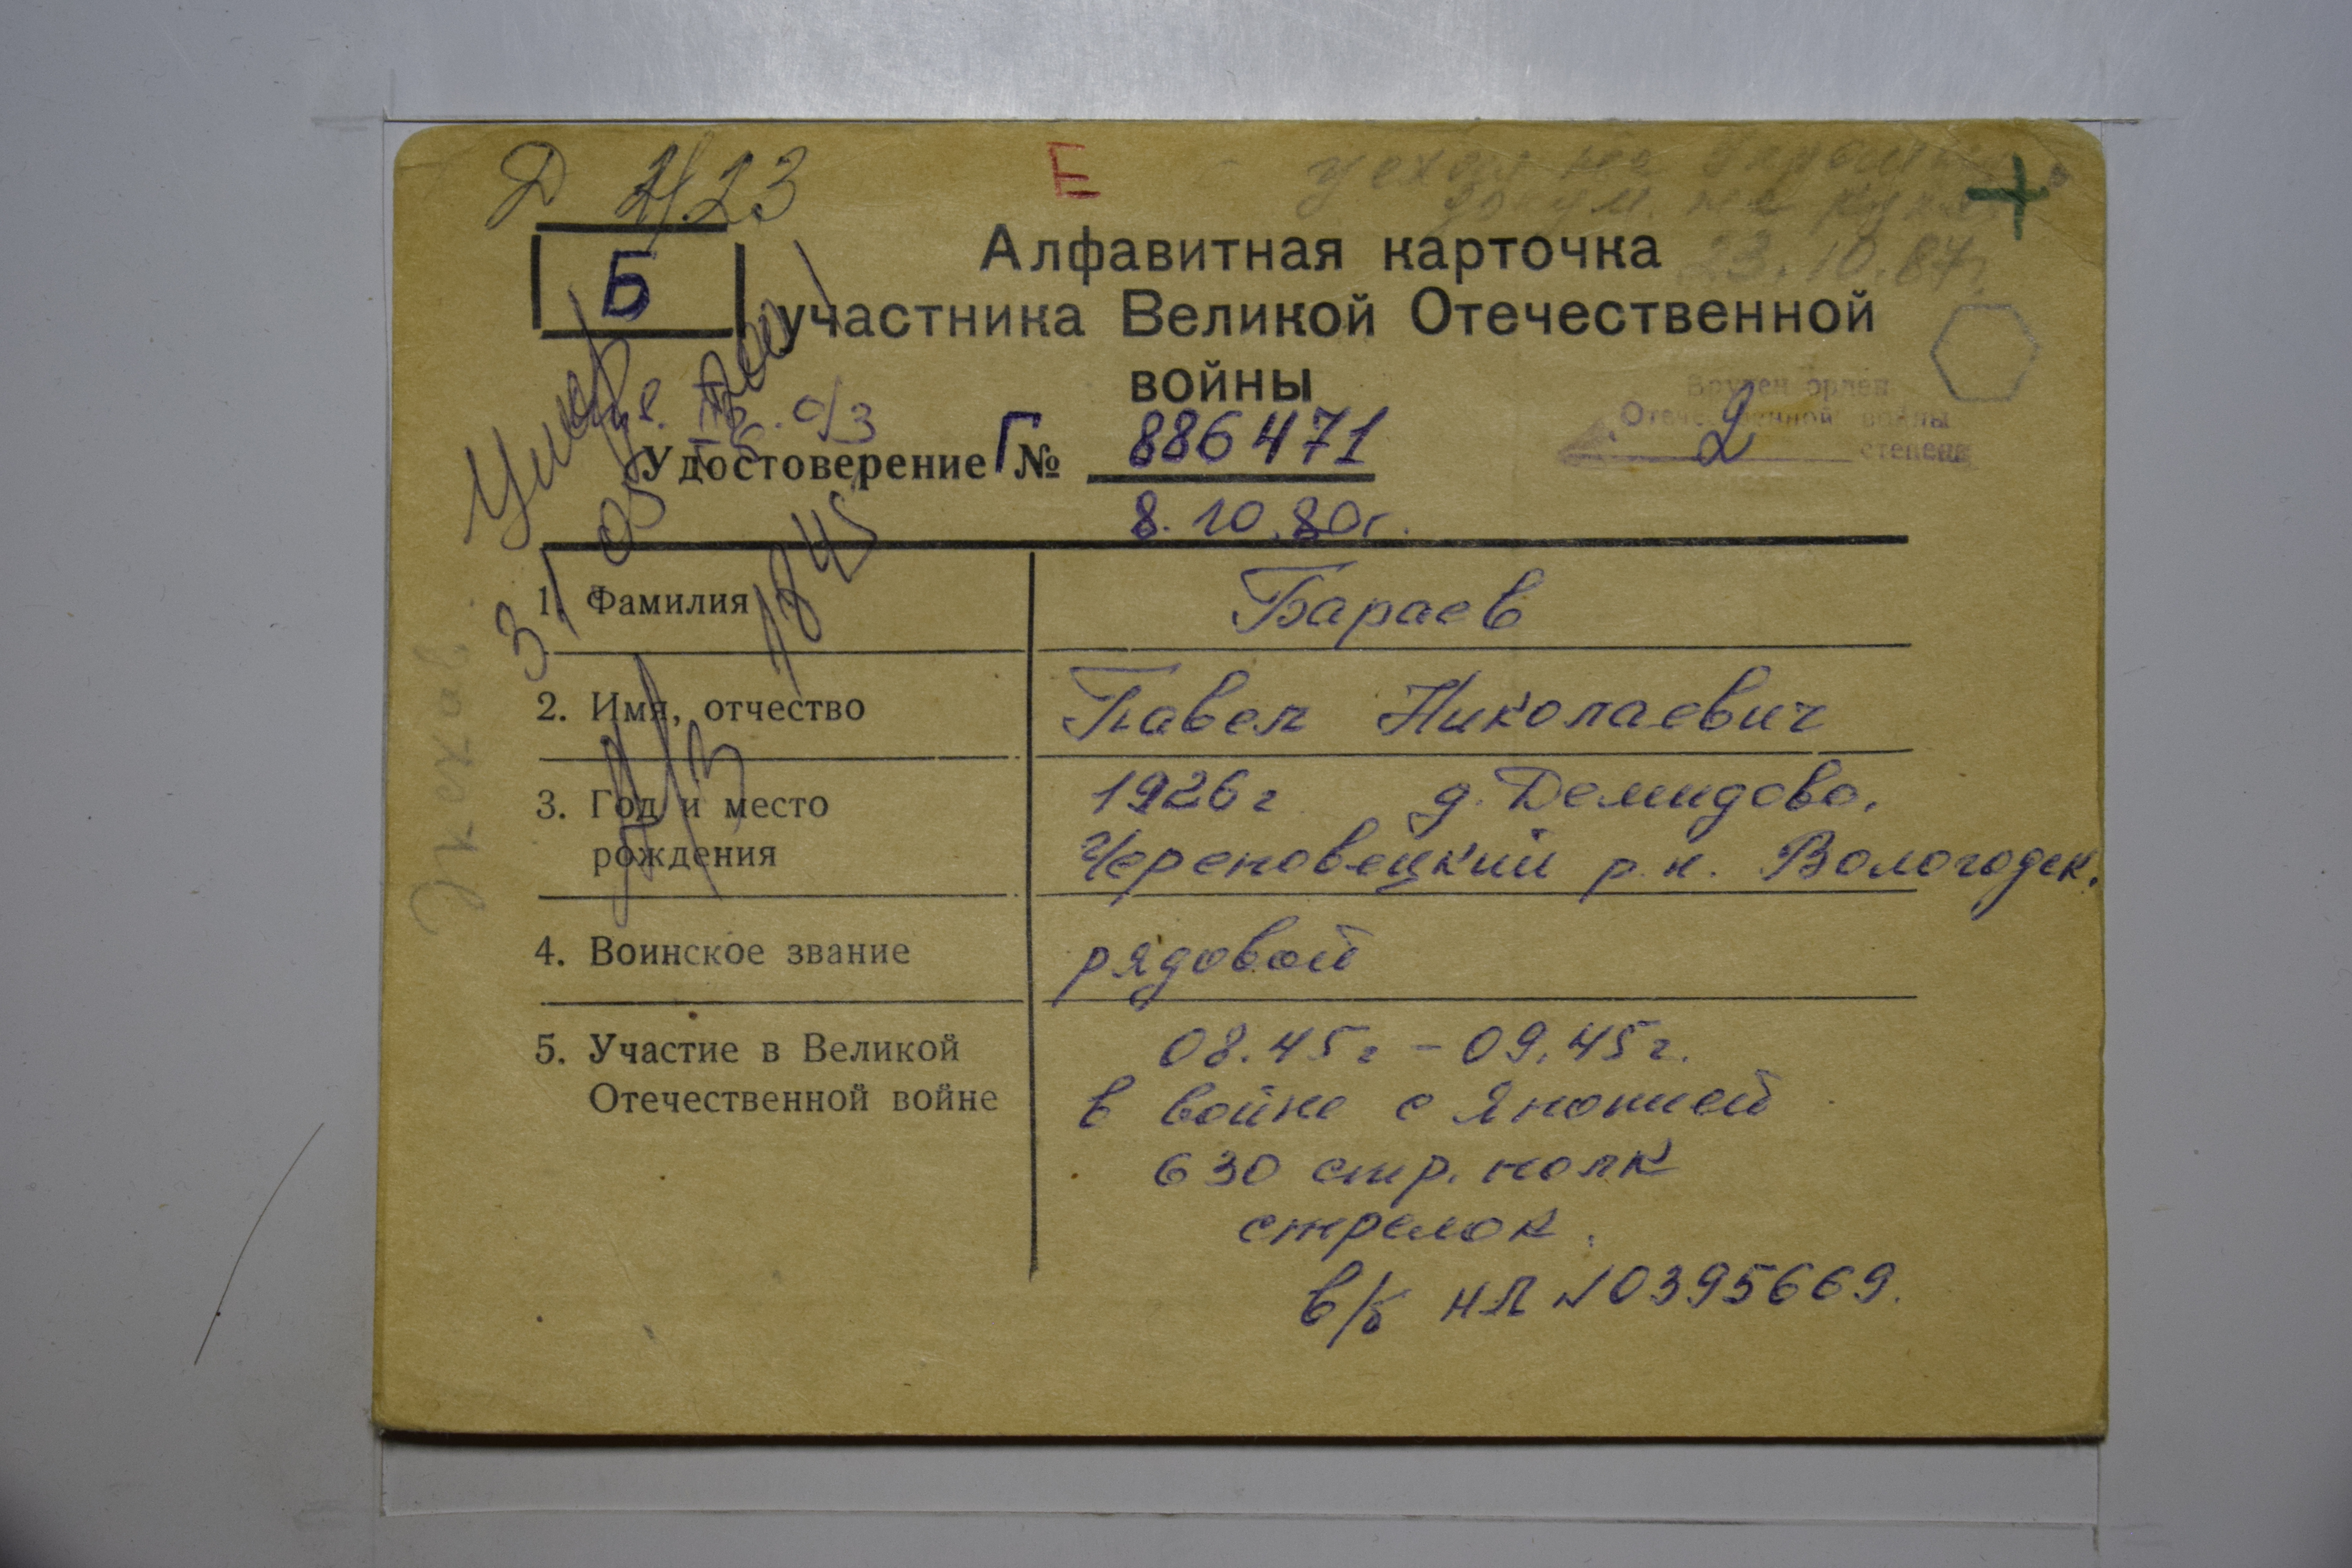 Д 4/23
Е
23.10.87г.
Б
Алфавитная карточка
участника Великой Отечественной
войны
Вручен орден
Отечественной войны
2 степени
Удостоверение Г № 886471
8.10.80г.
1. Фамилия Бараев
2. Имя, отчество Павел Николаевич
3. Год и место рождения 1926г д. Демидово,
Череповецкий р.н. Вологодск.
4. Воинское звание рядовой
5. Участие в Великой Отечественной войне 08.45г - 09.45г.
в войне с Японией
630 стр. полк
стрелок.
в/б НЛ № 0395669.
Умер